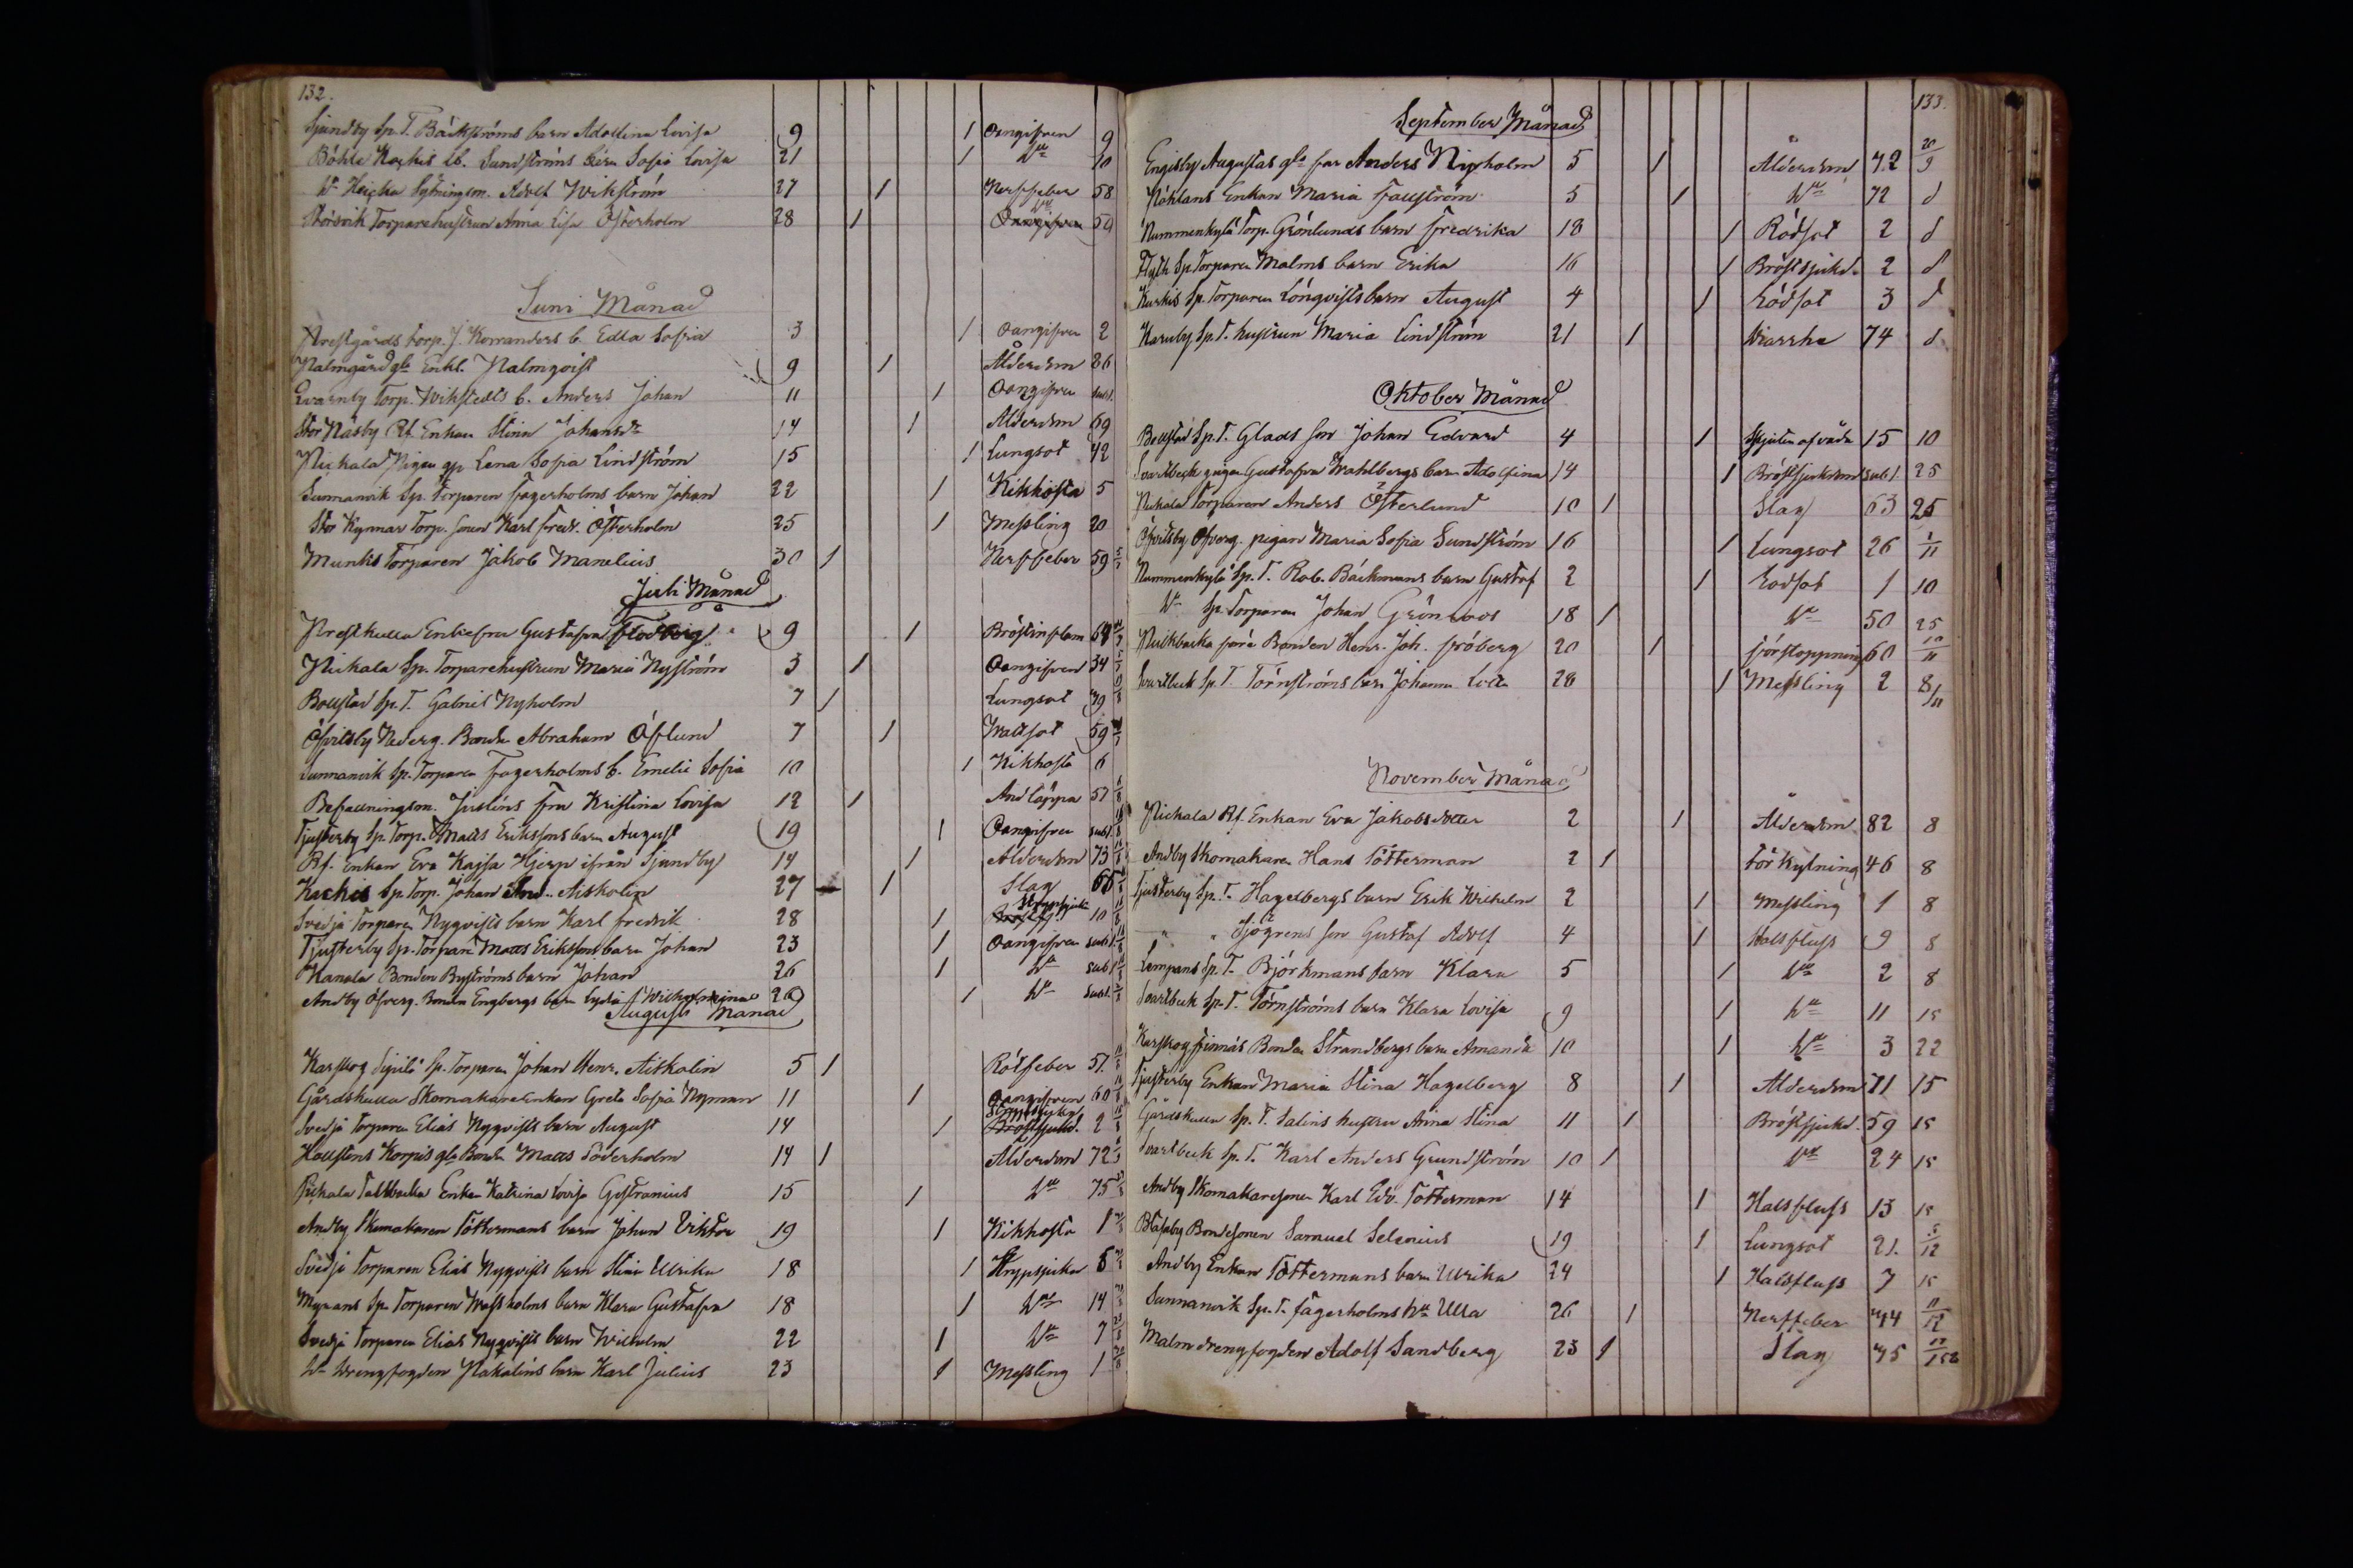 132.
Sjundby Sp. T. Bäckströms barn Adolfina Lovisa 9 1 Oangifven 9
Böhle Kackis Lb. Sundströms barn Sofia Lovisa 21 1 Do 10
Do Heicka Sytningsm. Adolf Wikström 27 1 Nerffeber 58
Störsvik Torparehustrun Anna Lisa Österholm 28 1 Do 50
Juni Månad
Prestgårds torp. J. Korranders b. Edla Sofia 3 1 oangifven 2
Malmgård gla Enkl. Malmqvist 9 1 Ålderdm 86
Qvarnby Torp. Wikstedts b. Anders Johan 11 1 Oangifven
Stor Näsby Rf. Enkan Stina Johansdr 14 1 Alderdm 69
Pickala Pigan Lena Sofia Lindström 15 1 Lungsot 42
Sunnanvik Sp. Torparen Fagerholms barn Johan 22 1 Kikhosta 5
Stor Kyrmar Torp. sonen Karl Fredr. Österholm 25 1 Messling 20
Munks Torparen Jakob Manelius 30 1 Nerffeber 59
Juli Månad
Prestkulla Enkefru Gustafva Flodberg 9 1 Bröstinflam
Pickala Sp. Torparehustrun Maria Nyström 3 1 Oangifven 34
Bollstad Sp. T. Gabriel Nyholm 7 1 Lungsot 39
Öfvitsby Nederg. Bonden Abraham Öflund 7 1 Wattsot 59
Sunnanvik Sp. Torparen Fagerholms b. Emelie Sofia 10 1 Kikhosta 6
Befallningsm. Juslins fru Kristina Lovisa 12 1 Andtäppa 57
Tjusterby Sp. Torp. Matts Erikssons barn August 19 1 Oangifven
Rf. Enkan Eva Kajsa Hjerp ifrån Sjundby 14 1 Alderdm 73
Kackis Sp. Torp. Johan And. Aiskolin 27 1 Slag 66
Svedja Torparen Nyqvists barn Karl Fredrik 28 1 Strypsjuka 10
Tjusterby Sp. Torparen Matts Erikssons barn Johan 23 1 Oangifven
Kanala Bonden Byströms barn Johan 26 1 Do
Andby Öfverg. Bonden Engbergs barn Lydia Wilhelmina 26 1 Do
Augusti Månad
Karskog Sp. Torparen Johan Henr. Aiskolin 5 1 Rötfeber 57
Gårdskulla Skomakareenkan Greta Sofia Nyman 11 1 Oangifven 60
Svedja Torparen Elias Nyqvists barn August 14 1 Strypsjuka 2
Hollstens Korpis gla Bonden Matts Söderholm 14 1 Alderdom 72
Pickala Tallbacka Enkan Katrina Lovisa Gestranius 15 1 Do 75
Andby Skomakaren Töttermans barn Johan Viktor 19 1 Kikhosta 1
Svedja Torparen Elias Nyqvists barn Stina Ulrika 18 1 Strypsjuka 5
Myrans Sp. Torparen Wassholms barn Klara Gustafva 18 1 Do 14
Svedja Torparen Elias Nyqvists barn Wilhelm 22 1 Do 7
Do Drengfogden Nakalins barn Karl Julius 23 1 Messling 1
133.
September Månad
Engisby Augustas gla far Anders Nipholm 5 1 Ålderdm 72 20/9
Påhlans Enkan Maria Fallström 5 1 Do 72 d
Nummenkylä Torp. Grönlunds barn Fredrika 18 1 Rödsot 2 d
Flyth Sp. Torparen Malms barn Erika 16 1 Bröstsjukd. 2 d
Kurkis Sp. Torparen Lönqvists barn August 4 1 Rödsot 3 d
Karuby Sp. T. hustrun Maria Lindström 21 1 Diarrhe 74 d
Oktober Månad
Bollstad Sp. T. Glads son Johan Edvard 4 1 Skjuten af våda 15 10
Svartbeck pigan Gustafva Wahlbergs barn Adolfina 14 1 Bröstsjukdm 25
Pickala Torparen Anders Österlund 10 1 Slag 63 25
Öfvitsby Öfverg. pigan Maria Sofia Sundström 16 1 Lungsot 26 1/11
Nummenkylä Sp. T. Rob. Bäckmans barn Gustaf 2 1 Rodsot 1 10
Do Sp. Torparen Johan Grönroos 18 1 Do 50 25
Pickbacka förre Bonden Henr. Joh. Fröberg 20 1 förstoppning 60 10/11
Svartbeck Sp. T. Törnströms barn Johanna Lotta 28 1 Messling 2 8/11
November Månad
Pickala Rf. Enkan Eva Jakobsdotter 2 1 Alderdm 82 8
Andby Skomakaren Hans Tötterman 2 1 Förkylning 46 8
Tjusterby Sp. T. Hagelbergs barn Erik Wilhelm 2 1 Messling 1 8
" " Sjögrens son Gustaf Adolf 4 1 Halsfluss 9 8
Lempans Sp. T. Björkmans barn Klara 5 1 Do 2 8
Svartbeck Sp. T. Törnströms barn Klara Lovisa 9 1 Do 11 15
Karskog Finnäs Bonden Strandbergs barn Amanda 10 1 Do 3 22
Tjusterby Enkan Maria Stina Hagelberg 8 1 Alderdm 71 15
Gårdskulla Sp. T. Salins hustru Anna Stina 11 1 Bröstsjukd. 59 15
Svartbeck Sp. T. Karl Anders Grundström 10 1 Do 24 15
Andby Skomakaresonen Karl Edv. Tötterman 14 1 Halsfluss 13 15
Bläsaby Bondesonen Samuel Selenius 19 1 Lungsot 21. 5/12
Andby Enkan Töttermans barn Ulrika 24 1 Halsfluss 7 15
Sunnanvik Sp. T. Fagerholms Hu Ulla 26 1 Nerffeber 44 11/12
Malm drengfogden Adolf Sandberg 23 1 Slag 45